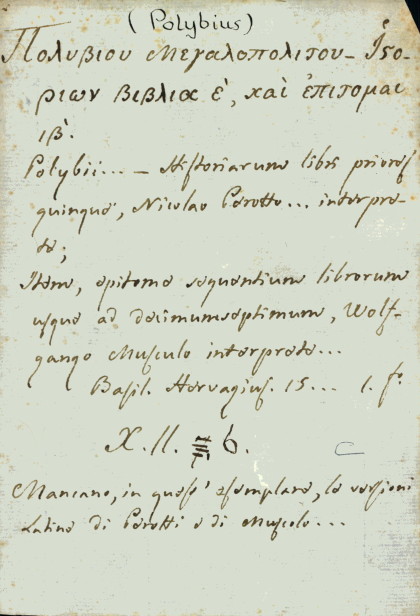 (Polybius)
Πολυβιου Μεγαλοπολιτου - Ἱςο-
ριων βιβλια έ, καὶ ἐπιτομαι
ιβ́.
Polybii... - Historiarum libri priores
quinque, Nicolao Perotto... interpre-
te;
Item, epitome sequentium librorum
usque ad decimumseptimum, Wolf-
gango Musculo interprete...
Basil. Hervagius. 15... 1. f.º
X. II. 6.
Mancano, in quest' esemplare, le versioni
Latine di Perotti e di Musculo...